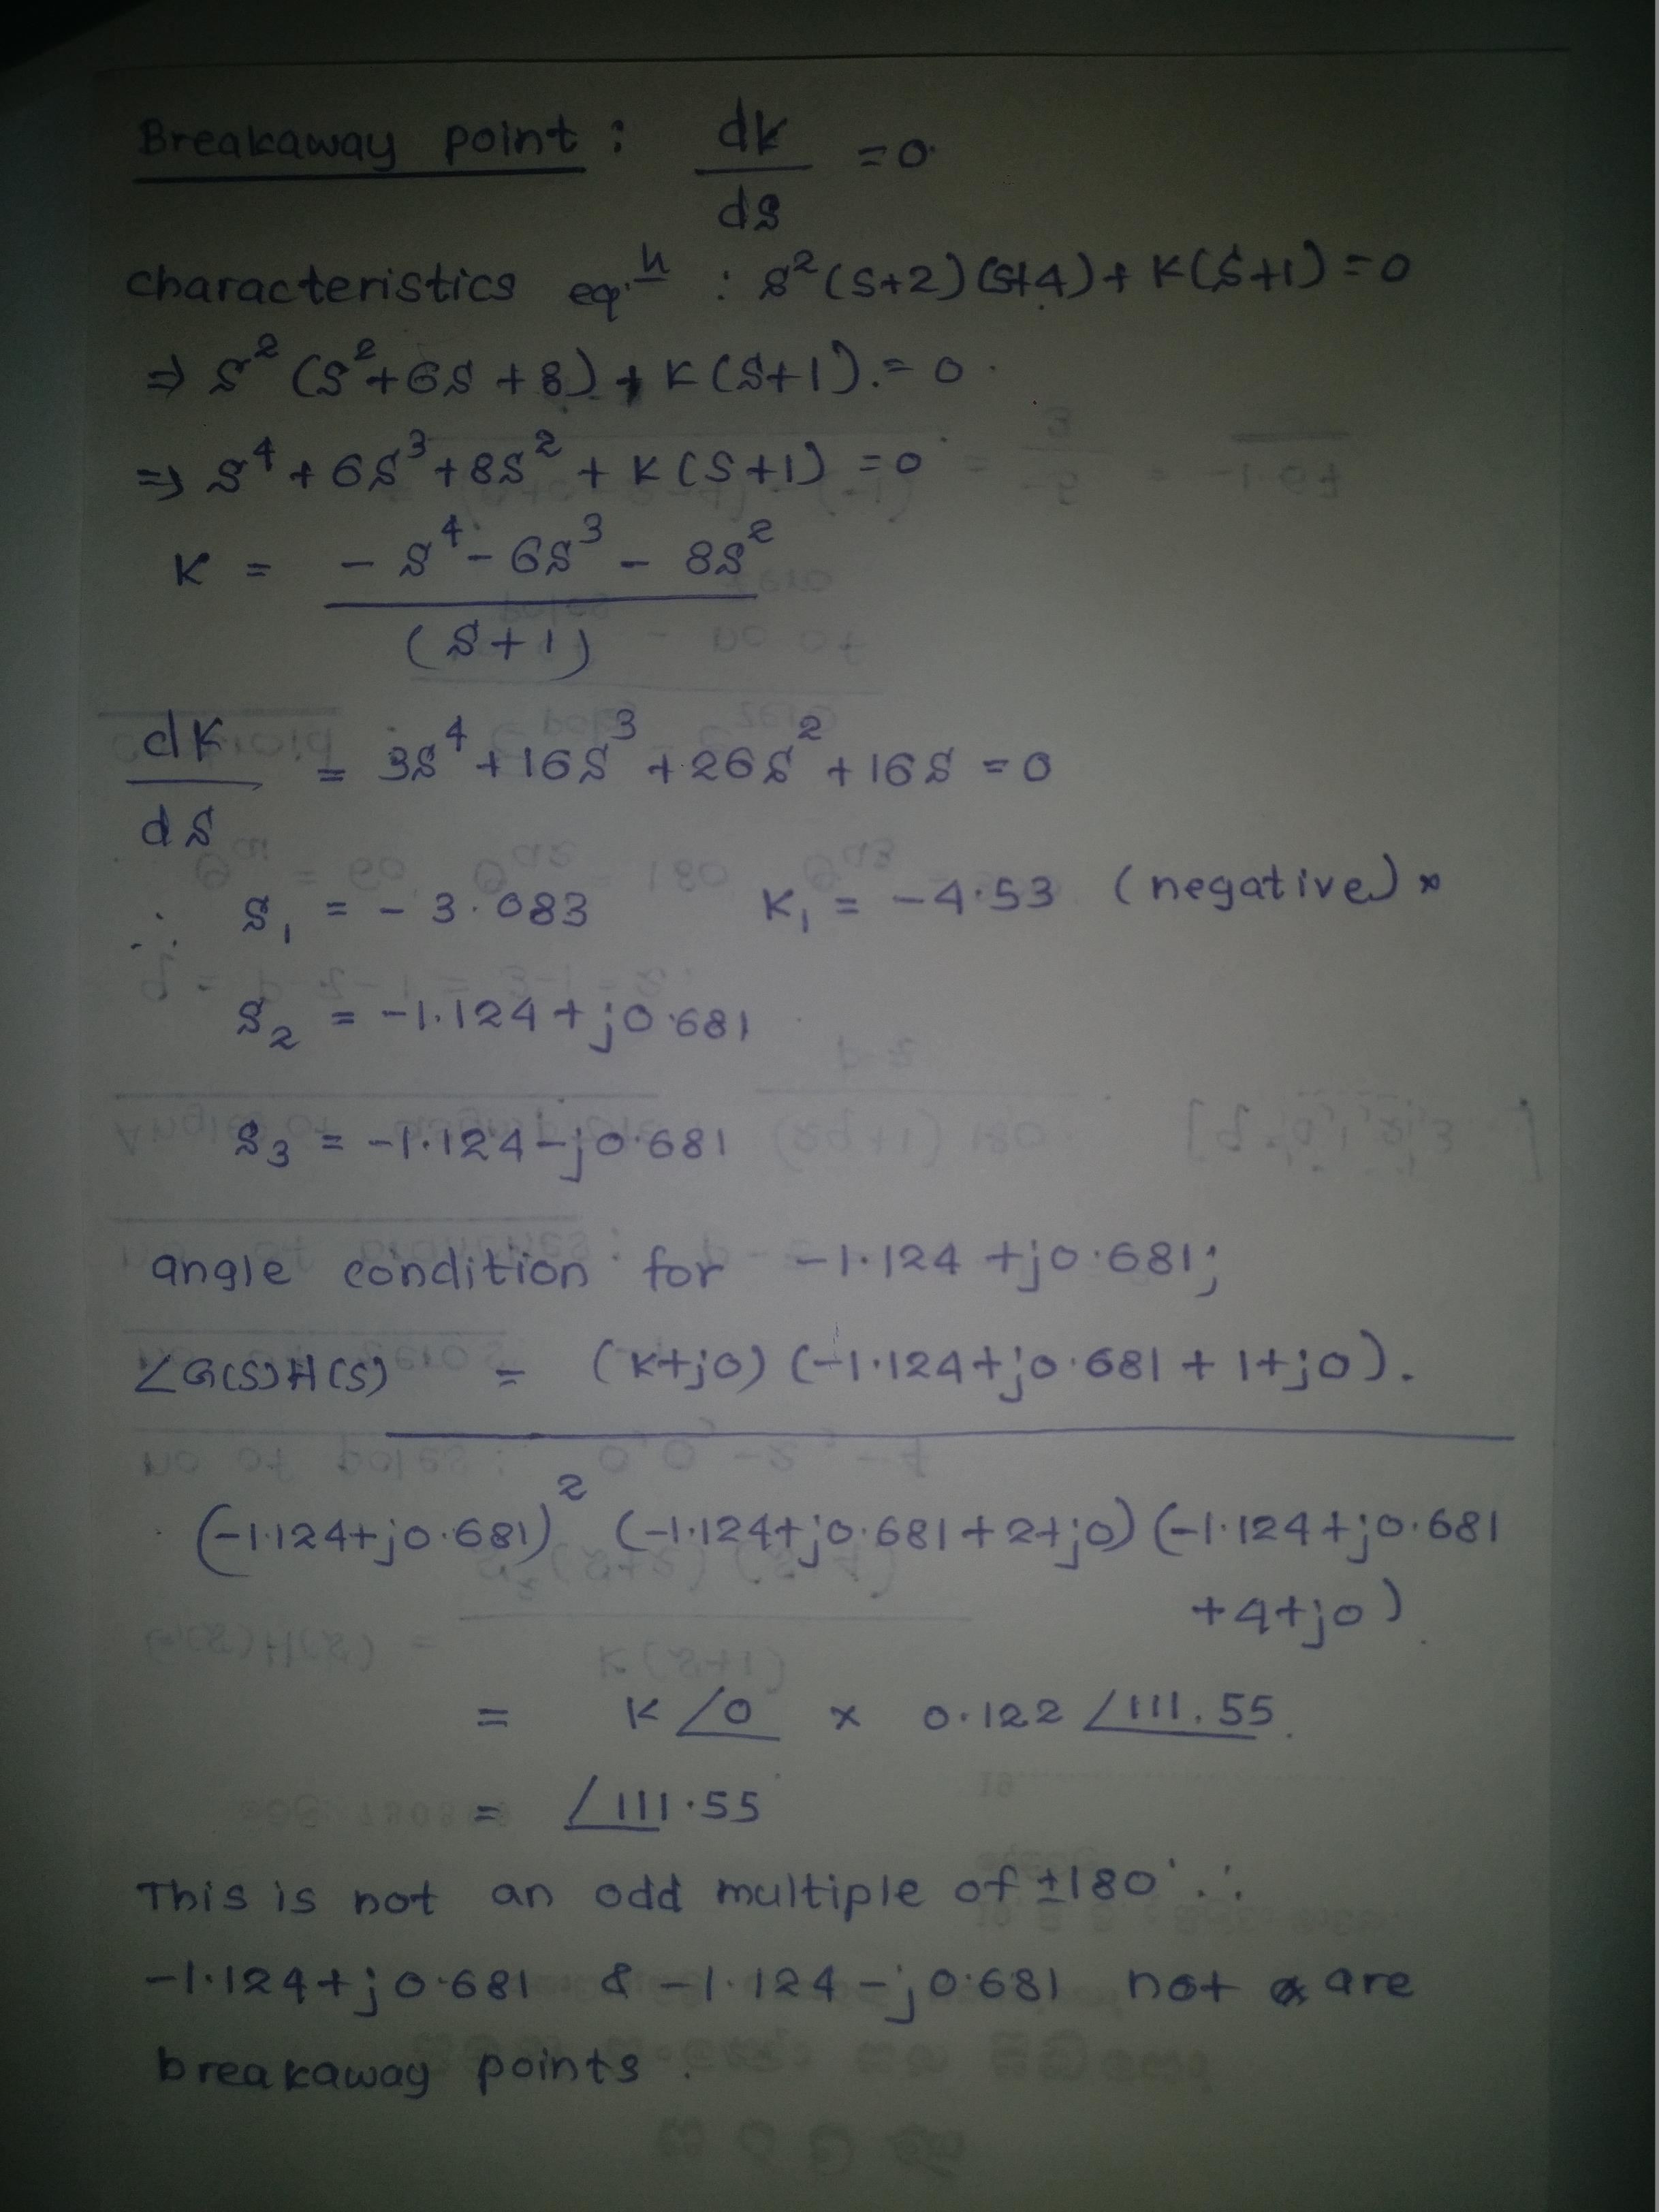 Breakaway point : dk/ds = 0.
characteristics eq.n : s²(s+2)(s+4) + K(s+1) = 0
⇒ s²(s²+6s+8) + K(s+1). = 0.
⇒ s⁴ + 6s³ + 8s² + K(s+1) = 0
K = (- s⁴ - 6s³ - 8s²)/(s+1)
dK/ds = 3s⁴ + 16s³ + 26s² + 16s = 0
∴ s₁ = - 3.083 K₁ = -4.53 (negative) ×
s₂ = -1.124 + j0.681
s₃ = -1.124 - j0.681
angle condition for -1.124 + j0.681;
∠G(s)H(s) = (K+j0) (-1.124+j0.681 + 1+j0).
(-1.124+j0.681)² (-1.124+j0.681+2+j0) (-1.124+j0.681
+4+j0)
= K ∠0 × 0.122 ∠111.55.
= ∠111.55
This is not an odd multiple of ±180° ∴
-1.124+j0.681 & -1.124-j0.681 not are
breakaway points.